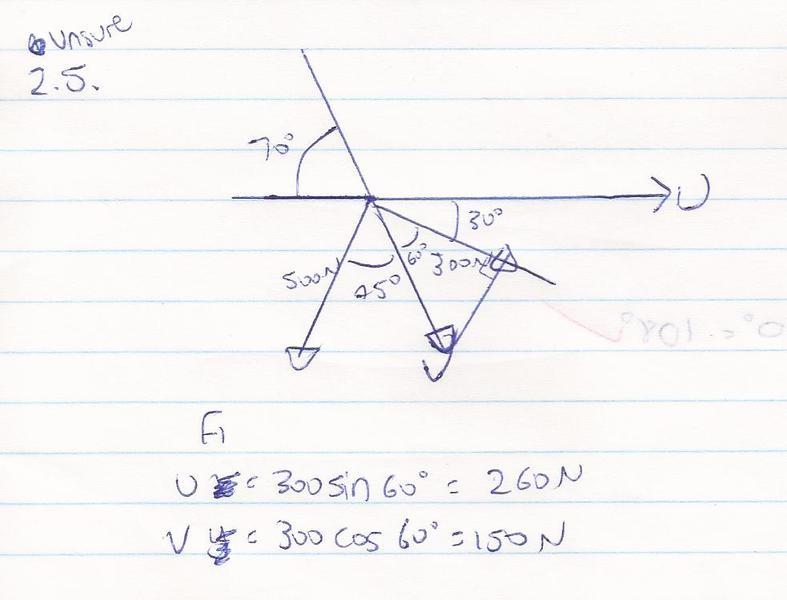 unsure
2.5.
70°
U
30°
60°
300N
500N
45°
V
F1
U = 300 sin 60° = 260N
V = 300 cos 60° = 150N